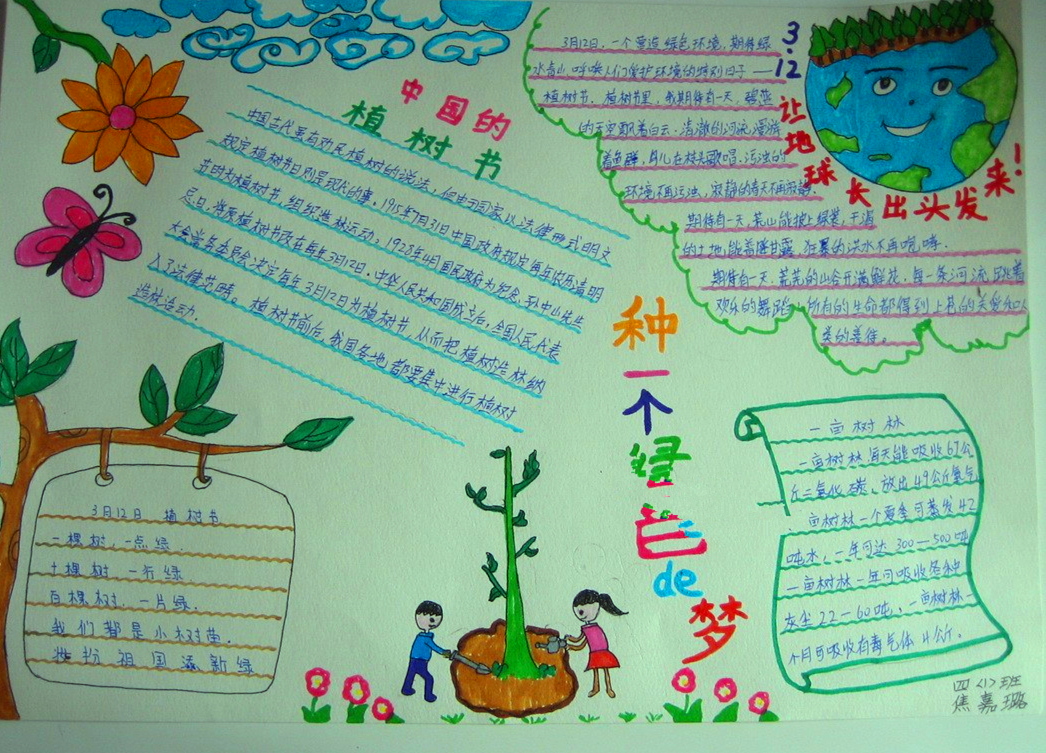 中国的
植树节
中国古代虽有劝民植树的说法,但由于国家以法律形式明文
规定植树节日则是现代的事,1915年7月31日中国政府规定每年农历清明
节时为植树节,组织造林运动;1928年4月国民政府为纪念孙中山先生
忌日,将原植树节改在每年3月12日。中华人民共和国成立后,全国人民代表
大会常务委员会决定每年3月12日为植树节,从而把植树造林纳
入了法律范畴。植树节前后,我国各地都要集中进行植树
造林活动.
3.12
让地球长出头发来!
3月12日,一个营造绿色环境,期待绿
水青山,呼唤人们爱护环境的特别日子——
植树节。植树节里,我期待有一天,碧蓝
的天空飘着白云,清澈的河流漫游
着鱼群,鸟儿在枝头歌唱.污浊的
环境不再污浊,寂静的春天不再寂静.
期待有一天,荒山能披上绿装,干渴
的土地能盖上甘露,狂暴的洪水不再咆哮.
期待有一天,荒芜的山谷开满鲜花,每一条河流跳着
欢乐的舞蹈,所有的生命都得到上苍的关爱和人
类的善待。
种一个绿色de梦
3月12日 植树节
一棵树,一点绿.
十棵树 一行绿
百棵树.一片绿.
我们都是小树苗.
装扮祖国添新绿
一亩树林
一亩树林每天能吸收67公
斤二氧化碳,放出49公斤氧气
一亩树林一个夏季可蒸发42
吨水,一年可达300—500吨
一亩树林一年可吸收各种
灰尘22—60吨,一亩树林一
个月可吸收有毒气体4公斤。
四(1)班
焦嘉璐